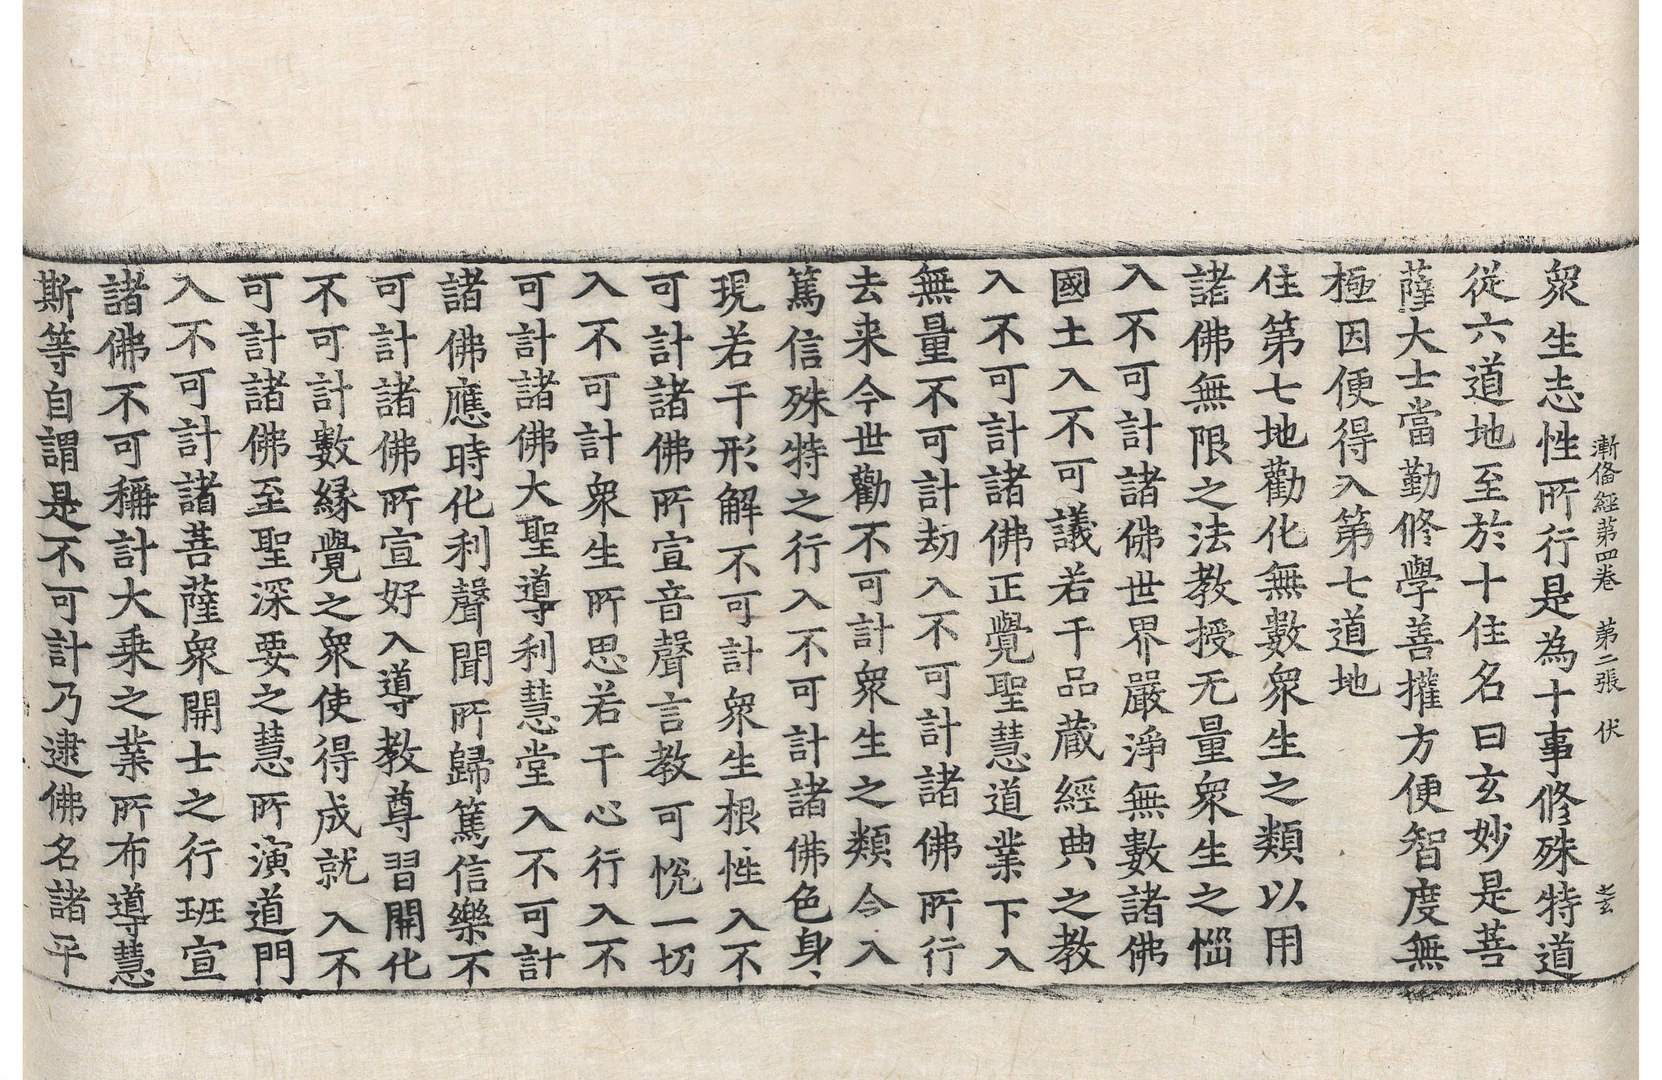 漸俻經第四卷　第二張　伏
衆生志性所行是為十事修殊特道
從六道地至於十住名曰玄妙是菩
薩大士當勤修學善權方便智度無
極因便得入第七道地
住第七地勸化無數衆生之類以用
諸佛無限之法教授无量衆生之惱
入不可計諸佛世界嚴淨無數諸佛
國土入不可議若干品藏經典之教
入不可計諸佛正覺聖慧道業下入
無量不可計劫入不可計諸佛所行
去来今世勸不可計衆生之類今入
篤信殊特之行入不可計諸佛色身
現若干形解不可計衆生根性入不
可計諸佛所宣音聲言教可悅一切
入不可計衆生所思若干心行入不
可計諸佛大聖導利慧堂入不可計
諸佛應時化利聲聞所歸篤信樂不
可計諸佛所宣好入導教尊習開化
不可計數縁覺之衆使得成就入不
可計諸佛至聖深要之慧所演道門
入不可計諸菩薩衆開士之行班宣
諸佛不可稱計大乗之業所布導慧
斯等自謂是不可計乃逮佛名諸平